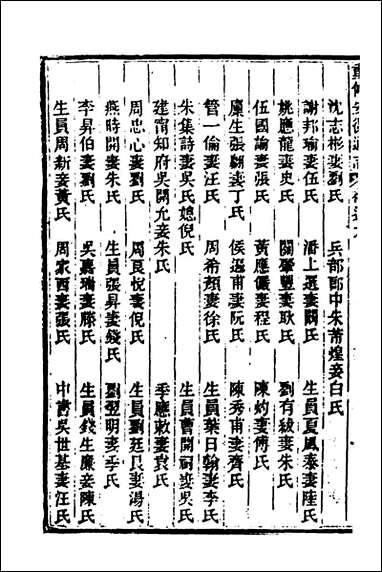 重修安徽通志
沈志彬妻劉氏 兵部郎中朱黼煌妾白氏
謝邦瑜妻伍氏 潘上選妻闞氏 生員夏風泰妻陸氏
姚應龍妻史氏 闞肇豐妻耿氏 劉有紱妻朱氏
伍國諭妻張氏 黃應儀妻程氏 陳灼妻傅氏
廩生張翮妻丁氏 侯選甫妻阮氏 陳秀甫妻齊氏
管一倫妻汪氏 周希顏妻徐氏 生員葉日翰妻李氏
朱集詩妻吳氏媳倪氏 生員曹開祠妻吳氏
建甯知府吳開允妾朱氏 季應敕妻袁氏
周忠心妻劉氏 周良悅妻倪氏 生員劉廷良妻湯氏
燕時開妻朱氏 生員張昇妻錢氏 劉翌明妻李氏
李昇伯妻劉氏 吳嘉瑞妻滕氏 生員錢生廉妾陳氏
生員周新妾黃氏 周家酉妻張氏 中書吳世基妻汪氏